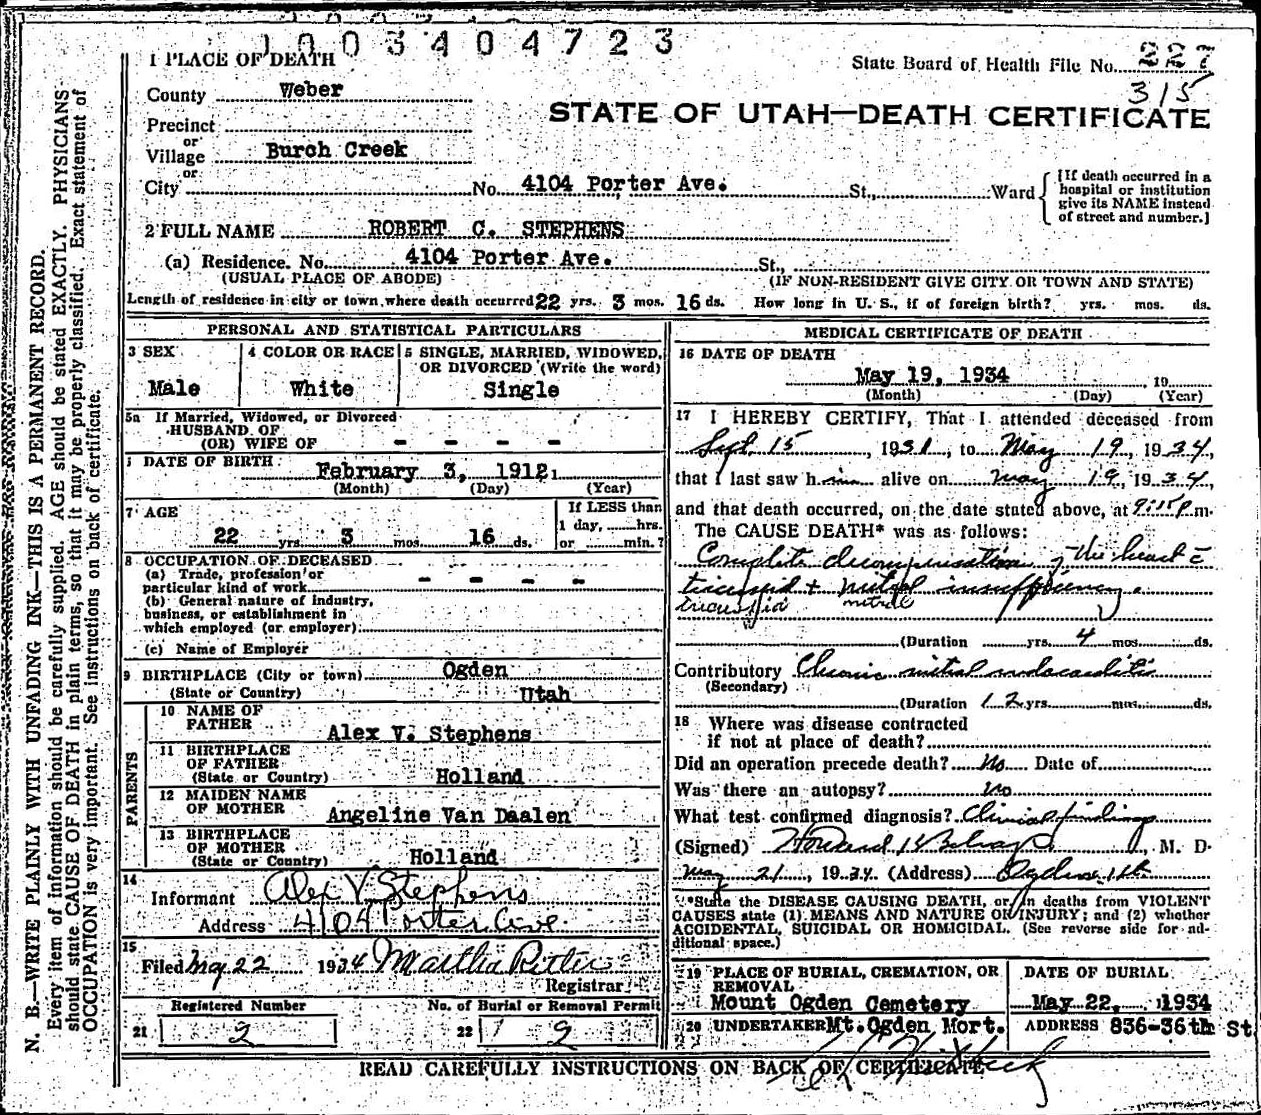 1003404723
1 PLACE OF DEATH
State Board of Health File No. 227
County Weber
315
STATE OF UTAH—DEATH CERTIFICATE
Precinct
or
Village Burch Creek
or
City No. 4104 Porter Ave. St., Ward
[If death occurred in a
hospital or institution
give its NAME instead
of street and number.]
2 FULL NAME ROBERT C. STEPHENS
(a) Residence. No. 4104 Porter Ave. St.,
(USUAL PLACE OF ABODE) (IF NON-RESIDENT GIVE CITY OR TOWN AND STATE)
Length of residence in city or town where death occurred 22 yrs. 3 mos. 16 ds. How long in U. S., if of foreign birth? yrs. mos. ds.
PERSONAL AND STATISTICAL PARTICULARS
3 SEX
Male
4 COLOR OR RACE
White
5 SINGLE, MARRIED, WIDOWED,
OR DIVORCED (Write the word)
Single
5a If Married, Widowed, or Divorced
HUSBAND OF
(OR) WIFE OF - - - -
DATE OF BIRTH
February 3, 1912
(Month) (Day) (Year)
7 AGE
22 yrs. 3 mos. 16 ds.
If LESS than
1 day, hrs.
or min.?
8 OCCUPATION OF DECEASED
(a) Trade, profession or
particular kind of work - - - -
(b) General nature of industry,
business, or establishment in
which employed (or employer)
(c) Name of Employer
9 BIRTHPLACE (City or town) Ogden
(State or Country) Utah
PARENTS
10 NAME OF
FATHER Alex V. Stephens
11 BIRTHPLACE
OF FATHER
(State or Country) Holland
12 MAIDEN NAME
OF MOTHER Angeline Van Daalen
13 BIRTHPLACE
OF MOTHER
(State or Country) Holland
14
Informant Alex V Stephens
Address 4104 Porter Ave.
15
Filed May 22 1934 Martha Ritter
Registrar
Registered Number
21 2
No. of Burial or Removal Permit
22 1 2
MEDICAL CERTIFICATE OF DEATH
16 DATE OF DEATH
May 19, 1934, 19
(Month) (Day) (Year)
17 I HEREBY CERTIFY, That I attended deceased from
Sept. 15, 1931, to May 19, 1934,
that I last saw him alive on May 19, 1934,
and that death occurred, on the date stated above, at 9:15 P. m.
The CAUSE DEATH* was as follows:
Complete decompensation of the heart c̄
tricuspid + mitral insufficiency.
tricuspid mitral
(Duration yrs. 4 mos. ds.
Contributory Chronic mitral endocarditis
(Secondary)
(Duration 12 yrs. mos. ds.
18 Where was disease contracted
if not at place of death?
Did an operation precede death? No Date of
Was there an autopsy? No
What test confirmed diagnosis? Clinical findings
(Signed) Howard K Belnap, M. D.
May 21, 1934. (Address) Ogden, Utah
*State the DISEASE CAUSING DEATH, or, in deaths from VIOLENT
CAUSES state (1) MEANS AND NATURE OF INJURY; and (2) whether
ACCIDENTAL, SUICIDAL OR HOMICIDAL. (See reverse side for ad-
ditional space.)
19 PLACE OF BURIAL, CREMATION, OR
REMOVAL
Mount Ogden Cemetery
DATE OF BURIAL
May 22, 1934
20 UNDERTAKER Mt. Ogden Mort.
ADDRESS 836-36th St
READ CAREFULLY INSTRUCTIONS ON BACK OF CERTIFICATE
N. B.—WRITE PLAINLY WITH UNFADING INK—THIS IS A PERMANENT RECORD.
Every item of information should be carefully supplied. AGE should be stated EXACTLY. PHYSICIANS
should state CAUSE OF DEATH in plain terms, so that it may be properly classified. Exact statement of
OCCUPATION is very important. See instructions on back of certificate.